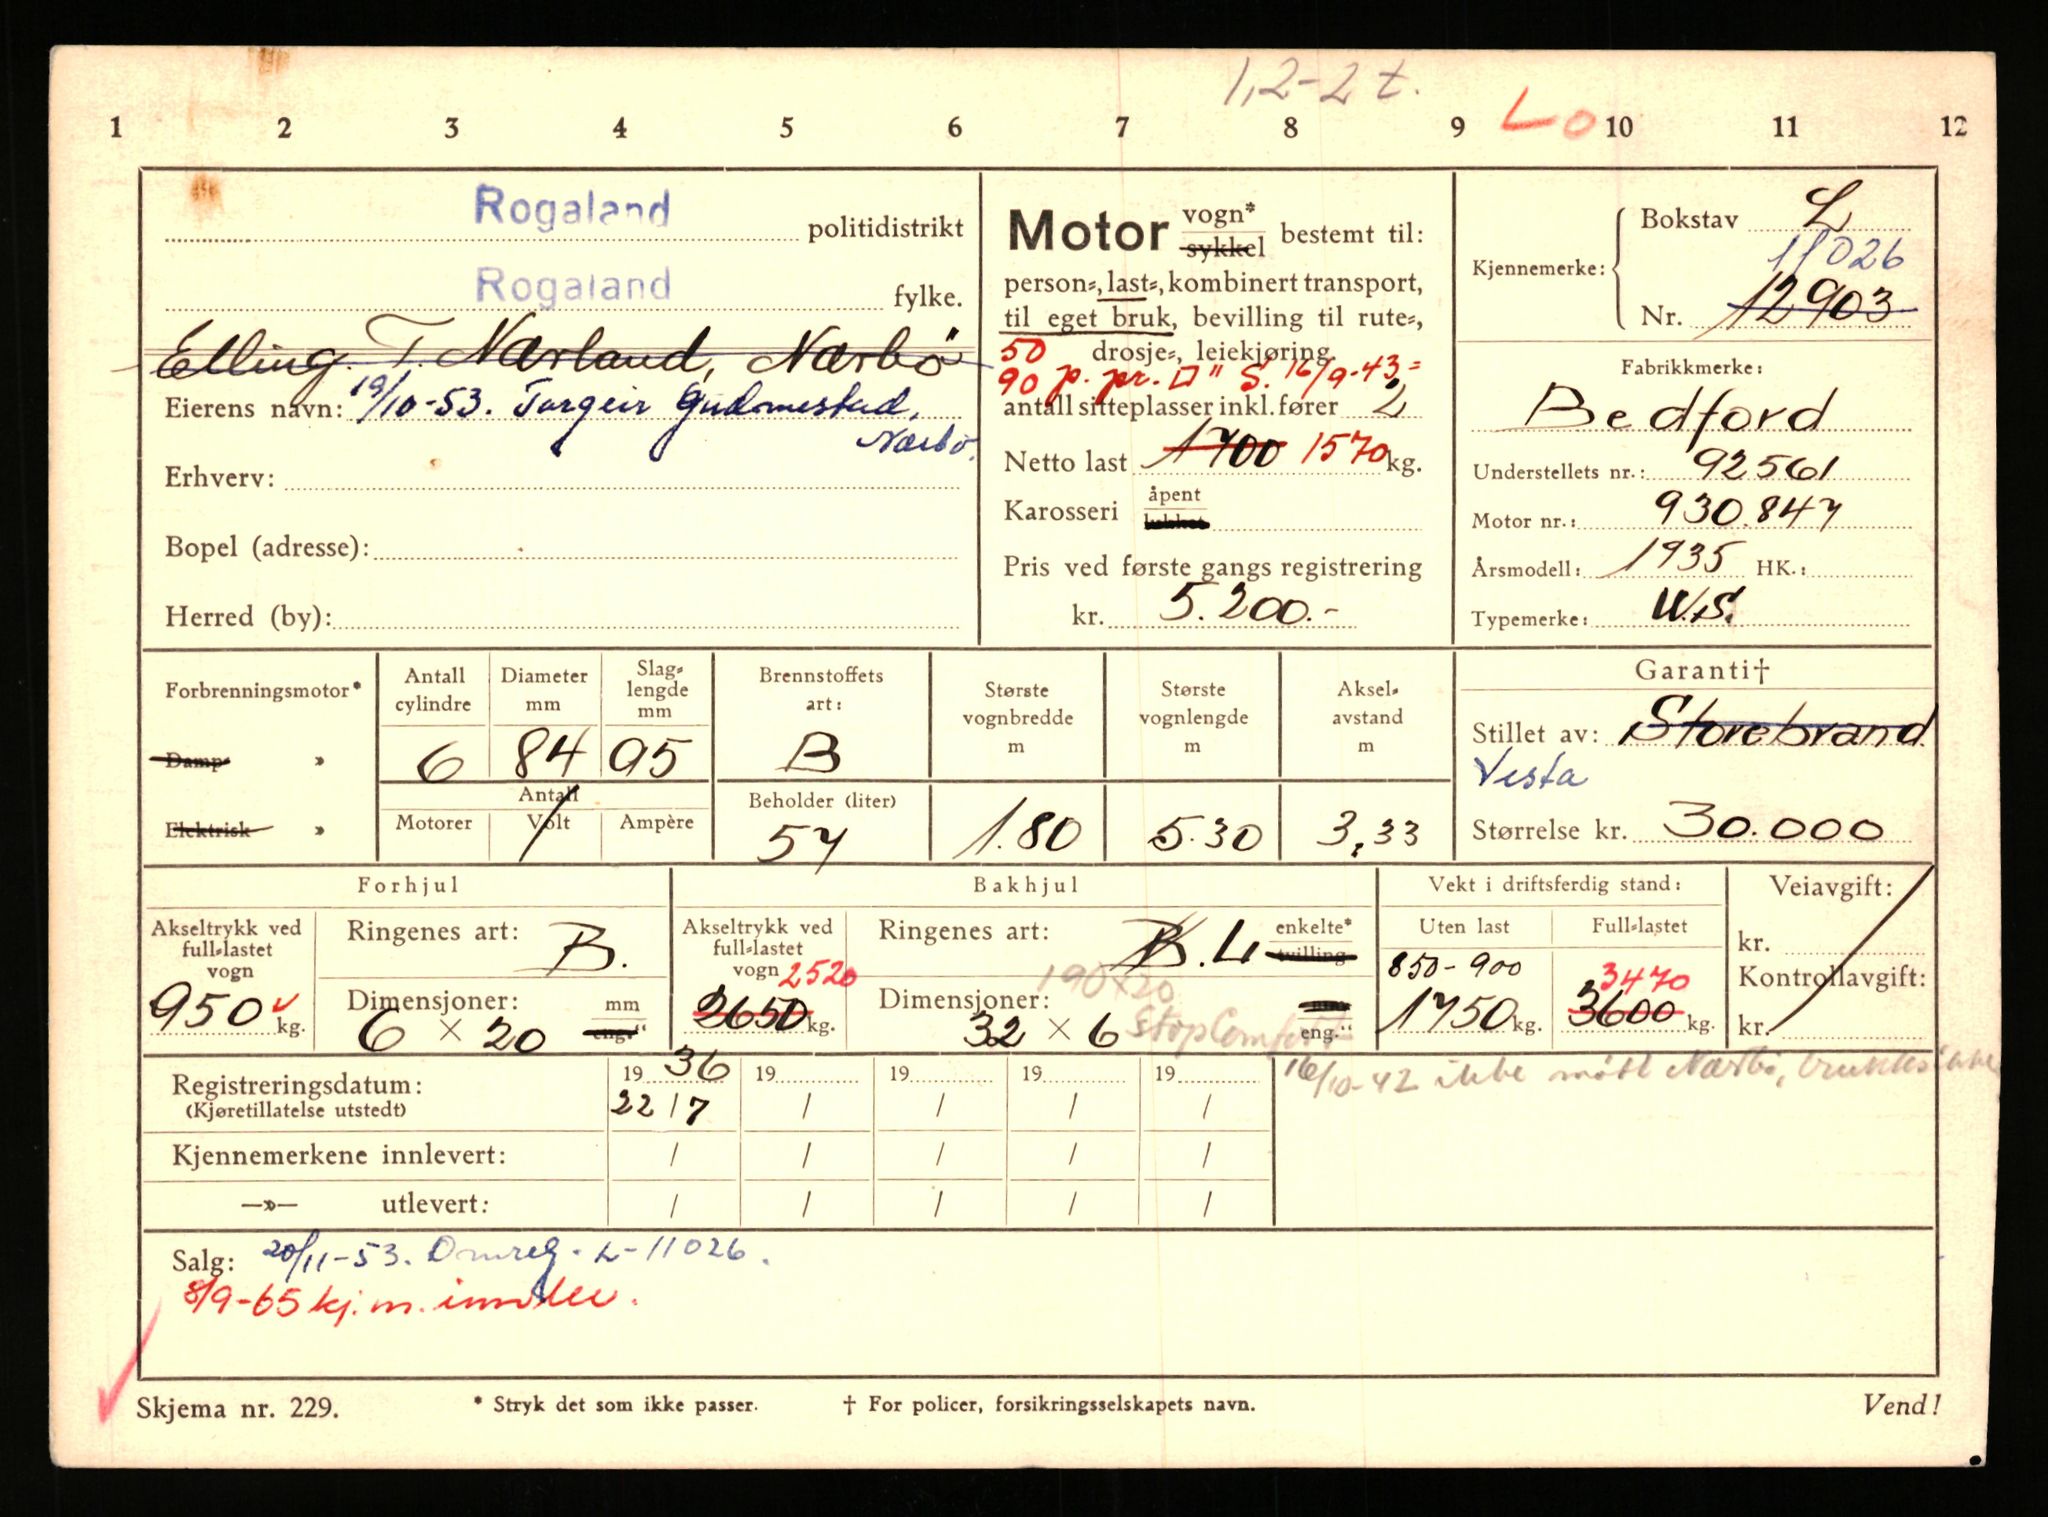 1,2-2 t.
Lo
1 2 3 4 5 6 7 8 9 10 11 12
Rogaland politidistrikt
Rogaland fylke.
Elling T. Nærland, Nærbö
Eierens navn: 19/10-53. Torgeir Gudmestad,
Nærbö.
Erhverv:
Bopel (adresse):
Herred (by):
Motor vogn* sykkel bestemt til:
person-, last-, kombinert transport,
til eget bruk, bevilling til rute-,
50 drosje-, leiekjøring.
90 p. pr. □" S. 16/9-43=
antall sitteplasser inkl. fører 2
Netto last 1700 1570 kg.
Karosseri åpent lukket
Pris ved første gangs registrering
kr. 5.200.-
Kjennemerke: Bokstav L
11026
Nr. 12903
Fabrikkmerke:
Bedford
Understellets nr.: 92561
Motor nr.: 930.847
Årsmodell: 1935 HK.:
Typemerke: W.S.
Forbrenningsmotor*
Damp »
Elektrisk »
Antall cylindre
Diameter mm
Slag-lengde mm
6 84 95
Antall
Motorer Volt Ampère
Brennstoffets art:
B
Beholder (liter)
57
Største vognbredde m
1.80
Største vognlengde m
5.30
Aksel-avstand m
3,33
Garanti†
Stillet av: Storebrand
Vesta
Størrelse kr. 30.000
Forhjul
Akseltrykk ved full-lastet vogn
950 kg.
Ringenes art: B.
Dimensjoner: mm
6 × 20 eng."
Bakhjul
Akseltrykk ved full-lastet vogn 2520
2650 kg.
Ringenes art: B. L enkelte* tvilling
190×20
Dimensjoner: mm
32 × 6 eng."
Stop Comfort
Vekt i driftsferdig stand:
Uten last Full-lastet
850-900 3470
1750 kg. 3600 kg.
Veiavgift:
kr.
Kontrollavgift:
kr.
Registreringsdatum:
(Kjøretillatelse utstedt)
1936 19 19 19 19
22/7 / / / /
16/10-42 ikke møtt Nærbö, bruktes ikke
Kjennemerkene innlevert: / / / / /
—»— utlevert: / / / / /
Salg: 20/11-53. Omreg. L-11026.
8/9-65 kj.m. innlev.
Skjema nr. 229.
* Stryk det som ikke passer.
† For policer, forsikringsselskapets navn.
Vend!